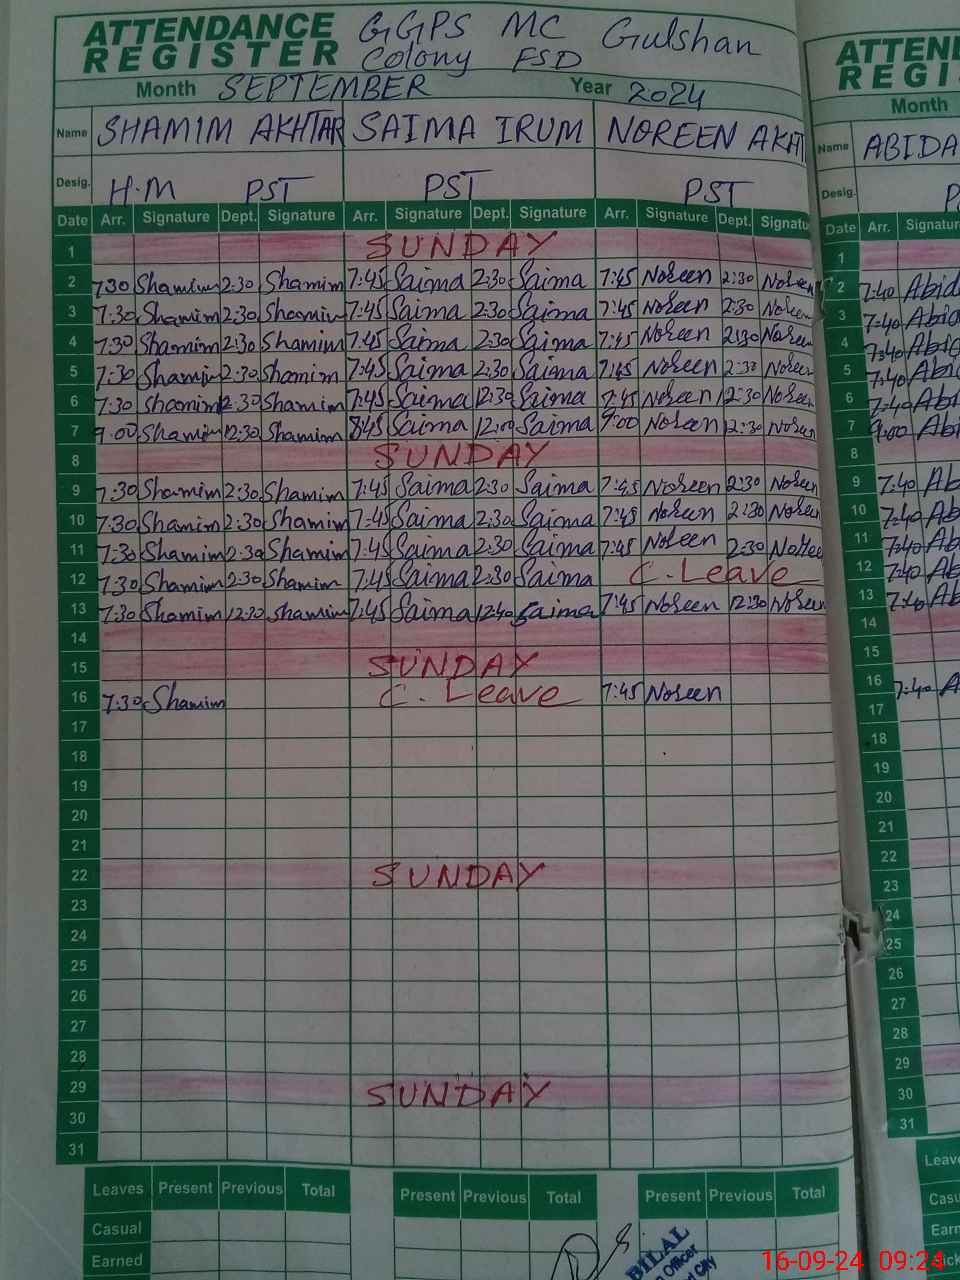 ATTENDANCE REGISTER GGPS MC Gulshan Colony FSD
Month SEPTEMBER Year 2024
Name SHAMIM AKHTAR SAIMA IRUM NOREEN AKHT
Desig. H.M PST PST PST
Date Arr. Signature Dept. Signature Arr. Signature Dept. Signature Arr. Signature Dept. Signatu
1 SUNDAY
2 7:30 Shamim 2:30 Shamim 7:45 Saima 2:30 Saima 7:45 Noreen 2:30 Noreen
3 7:30 Shamim 2:30 Shamim 7:45 Saima 2:30 Saima 7:45 Noreen 2:30 Noreen
4 7:30 Shamim 2:30 Shamim 7:45 Saima 2:30 Saima 7:45 Noreen 2:30 Noreen
5 7:30 Shamim 2:30 Shamim 7:45 Saima 2:30 Saima 7:45 Noreen 2:30 Noreen
6 7:30 Shamim 2:30 Shamim 7:45 Saima 12:30 Saima 7:45 Noreen 12:30 Noreen
7 9:00 Shamim 12:30 Shamim 8:45 Saima Saima 9:00 Noreen 12:30 Noreen
8 SUNDAY
9 7:30 Shamim 2:30 Shamim 7:45 Saima 2:30 Saima 7:45 Noreen 2:30 Noreen
10 7:30 Shamim 2:30 Shamim 7:45 Saima 2:30 Saima 7:45 Noreen 2:30 Noreen
11 7:30 Shamim 2:30 Shamim 7:45 Saima 2:30 Saima 7:45 Noreen 2:30 Noreen
12 7:30 Shamim 2:30 Shamim 7:45 Saima 2:30 Saima C. Leave
13 7:30 Shamim 12:30 Shamim 7:45 Saima 12:40 Saima 7:45 Noreen 12:30 Noreen
14
15 SUNDAY
16 7:30 Shamim C. Leave 7:45 Noreen
17
18
19
20
21
22 SUNDAY
23
24
25
26
27
28
29 SUNDAY
30
31
Leaves Present Previous Total Present Previous Total Present Previous Total
Casual
Earned
BILAL
Officer
City
ATTEN
REGI
Month
Name ABIDA
Desig. P
Date Arr. Signatur
1
2 7:40 Abid
3 7:40 Abid
4 7:40 Abid
5 7:40 Abid
6 7:40 Abi
7 9:00 Abi
8
9 7:40 Ab
10 7:40 Ab
11 7:40 Ab
12 7:40 Ab
13 7:40 Ab
14
15
16 7:40 A
17
18
19
20
21
22
23
24
25
26
27
28
29
30
31
Leave
Casu
Earn
16-09-24 09:24